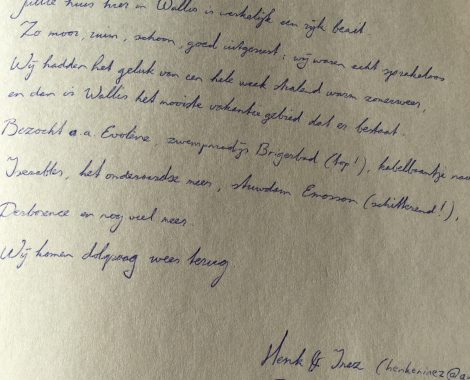 Jullie huis hier in Wallis is werkelijk een rijk bezit
Zo mooi, ruim, schoon, goed uitgerust: wij waren echt sprakeloos
Wij hadden het geluk van een hele week stralend warm zomerweer,
en dan is Wallis het mooiste vakantiegebied dat er bestaat.
Bezocht o.a. Evolène, zwemparadijs Brigerbad (top!), kabelbaantje naar
Isenables, het onderaardse meer, stuwdam Emosson (schitterend!),
Derborence en nog veel meer.
Wij komen dolgraag weer terug
Henk & Inez (henkeninez@